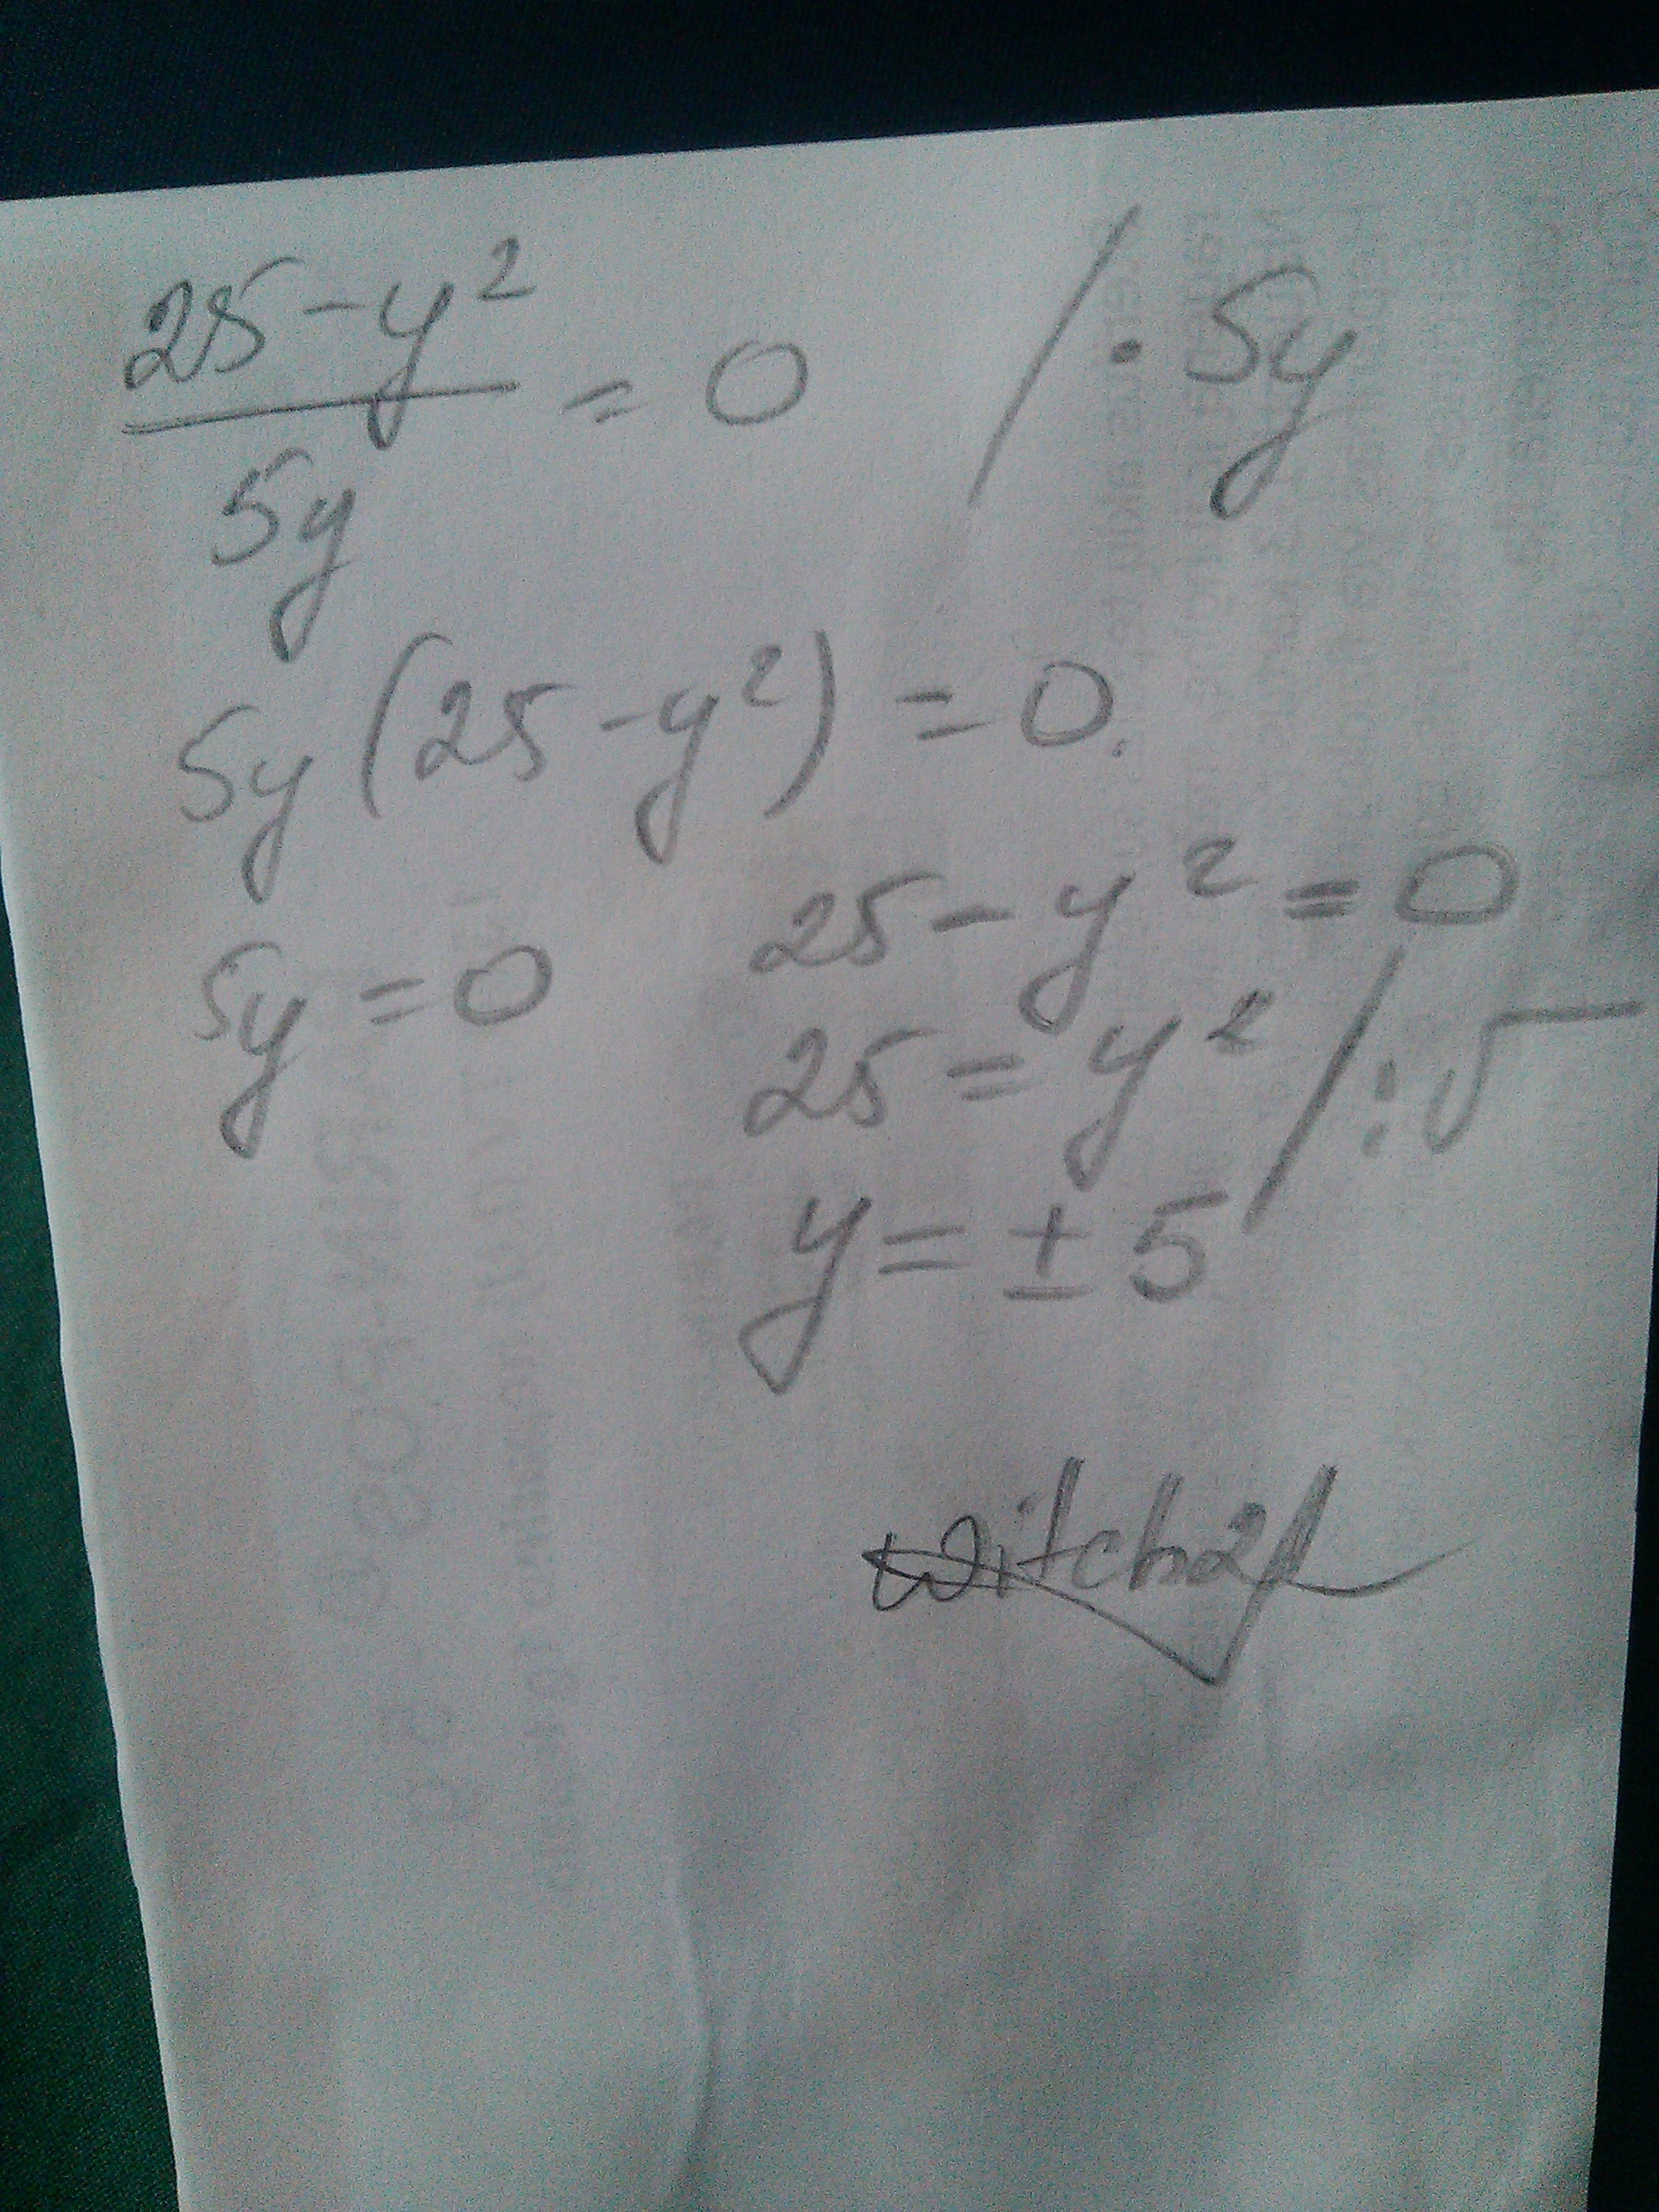 25-y² / 5y = 0 / · 5y
5y(25-y²) = 0.
5y = 0
25 - y² = 0
25 = y² / : √
y = ± 5
witch21